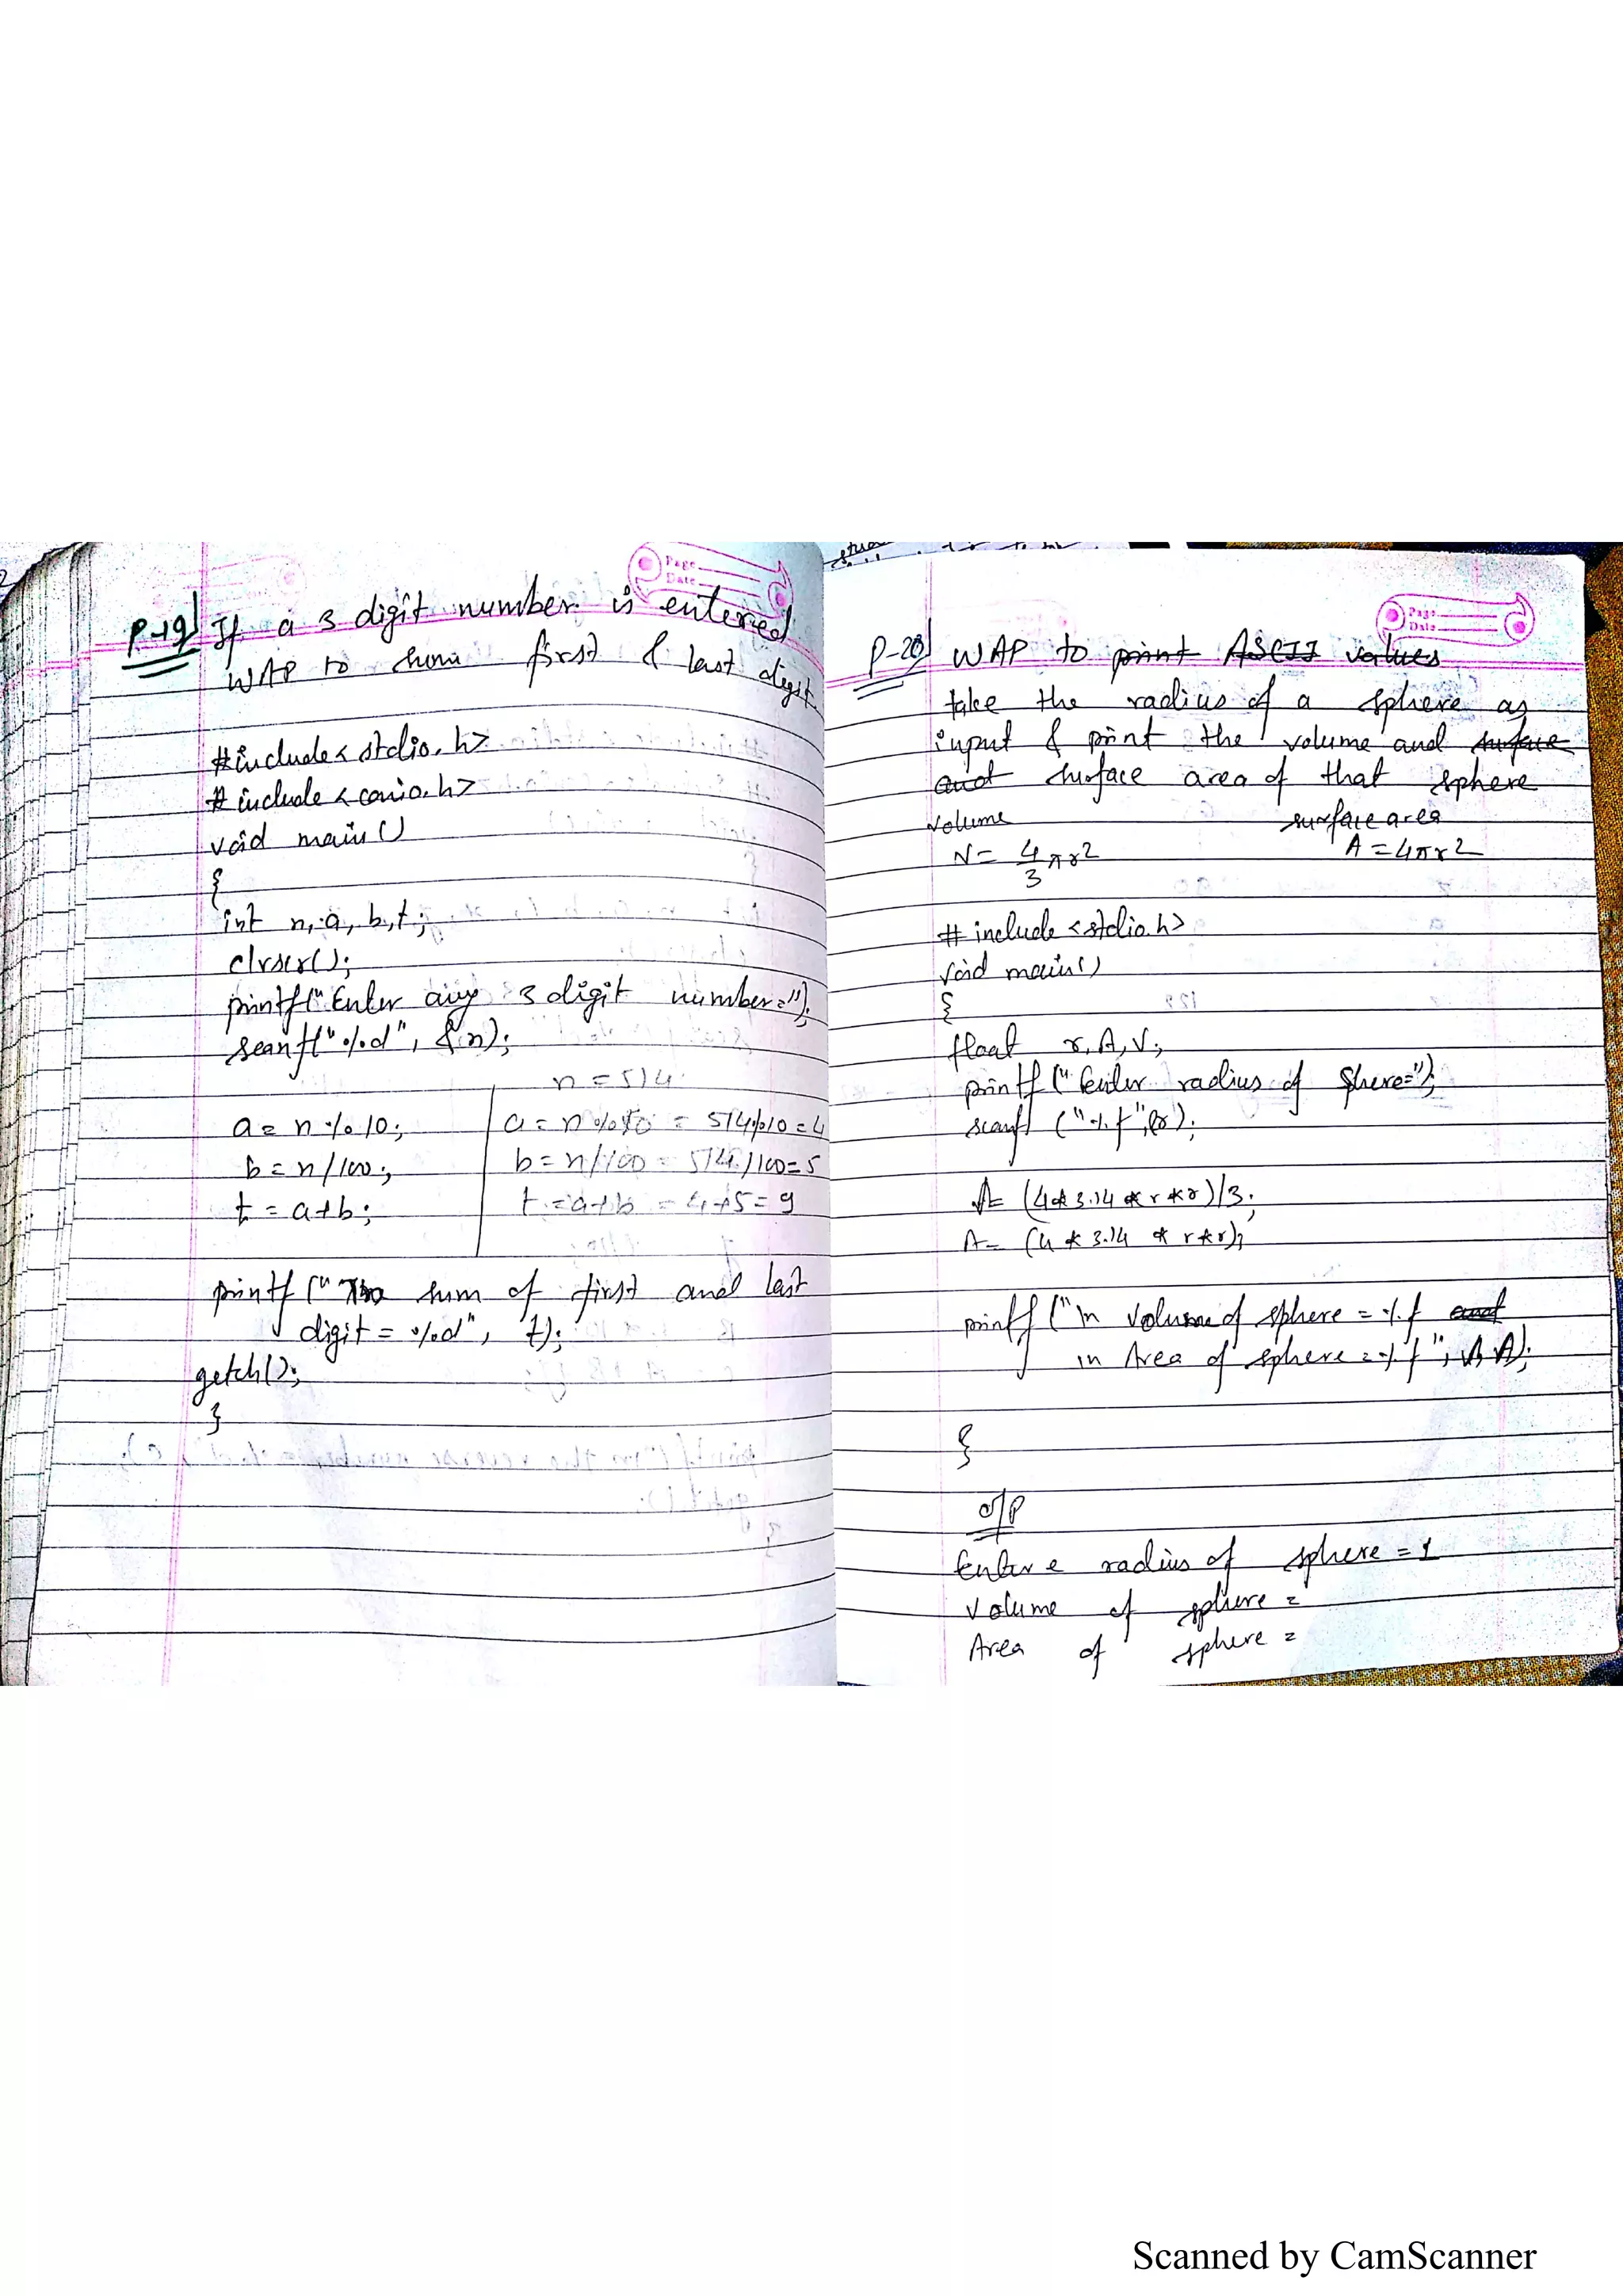 Page
Date
P-19) If a 3 digit number is entered
WAP to sum first & last digit
#include< stdio.h>
# include < conio.h>
void main()
{
int n, a, b, t;
clrscr();
printf("Enter any 3 digit number=");
scanf("%d", &n);
n = 514
a = n % 10; a = n % 10 = 514%10 = 4
b = n/100; b = n/100 = 514/100 = 5
t = a+b; t = a+b = 4+5 = 9
printf(" The sum of first and last
digit = %d", t);
getch();
}
Page
Date
P-20) WAP to print ASCII values
take the radius of a sphere as
input & print the volume and surface
and surface area of that sphere
volume surface area
V = 4/3 πr2 A = 4πr2
# include <stdio.h>
void main()
{
float r, A, V;
printf (" Enter radius of Shere=");
scanf ("%f", &r);
V= (4*3.14 * r *r)/3;
A= (4 * 3.14 * r*r);
printf ("\n Volume of sphere = %f and
\n Area of sphere = %f ", V, A);
{
O/P
Enter e radius of sphere = 1
Volume of sphere =
Area of sphere =
Scanned by CamScanner